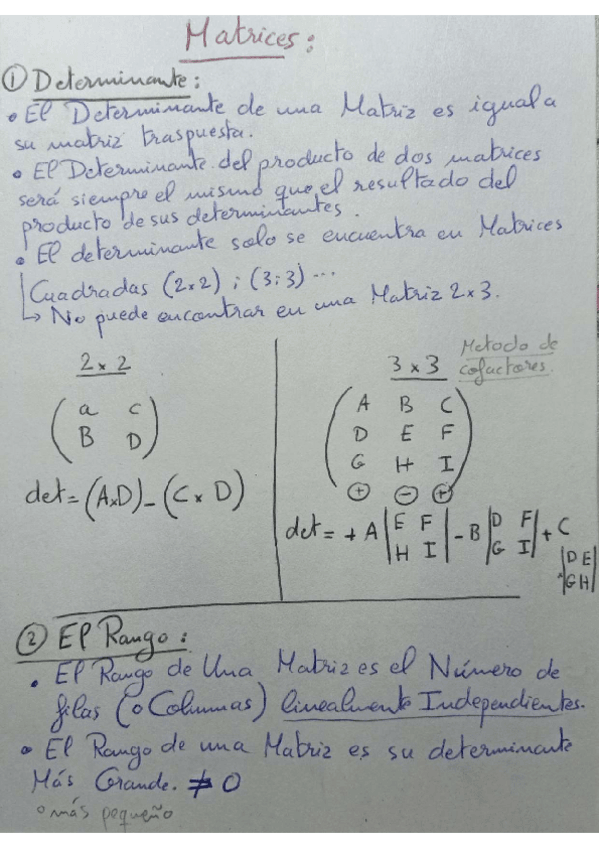 Matrices:
① Determinante:
• El Determinante de una Matriz es igual a
su matriz traspuesta.
• El Determinante del producto de dos matrices
será siempre el mismo que el resultado del
producto de sus determinantes.
• El determinante solo se encuentra en Matrices
Cuadradas (2×2) ; (3;3) ...
↳ No puede encontrar en una Matriz 2×3.
2×2
(a c
B D)
det = (A×D) - (C × D)
3×3
Metodo de
cofactores.
(A B C
D E F
G H I)
⊕ ⊖ ⊕
det = + A |E F| - B |D F| + C
|H I| |G I| |D E|
|G H|
② El Rango:
• El Rango de Una Matriz es el Número de
filas (o Columnas) linealmente Independientes.
• El Rango de una Matriz es su determinante
Más Grande. ≠ 0
o más pequeño